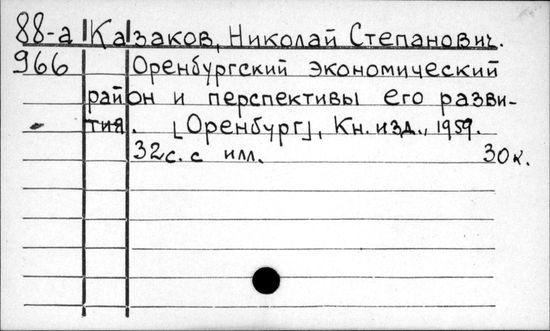 88-а Казаков, Николай Степанович.
966 Оренбургский экономический
район и перспективы его разви-
тия. [Оренбург], Кн. изд., 1959.
32 с. с илл. 30 к.